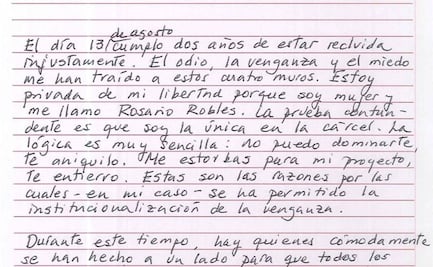 de agosto
El día 13 cumplo dos años de estar recluida
injustamente. El odio, la venganza y el miedo
me han traído a estos cuatro muros. Estoy
privada de mi libertad porque soy mujer y
me llamo Rosario Robles. La prueba contun-
dente es que soy la única en la cárcel. La
lógica es muy sencilla: no puedo dominarte,
te aniquilo. Me estorbas para mi proyecto,
te entierro. Estas son las razones por las
cuales - en mi caso - se ha permitido la
institucionalización de la venganza.
Durante este tiempo, hay quienes cómodamente
se han hecho a un lado para que todos los